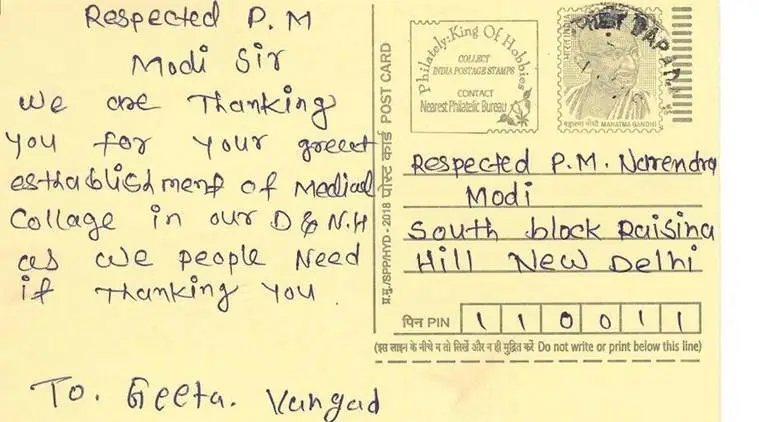 Respected P.M
Modi Sir
We are Thanking
you for your greeat
establishment of Medical
Collage in our D & N.H
as we people Need
if Thanking You.
To. Geeta. Vangad
प्र.मु./SPP/HYD - 2018 पोस्ट कार्ड POST CARD
Philately: King Of Hobbies
COLLECT
INDIA POSTAGE STAMPS
CONTACT
Nearest Philatelic Bureau
भारत INDIA
महात्मा गाँधी MAHATMA GANDHI
Respected P.M. Narendra
Modi
South block Raisina
Hill New Delhi
पिन PIN 1 1 0 0 1 1
(इस लाइन के नीचे न तो लिखें और न ही मुद्रित करें Do not write or print below this line)